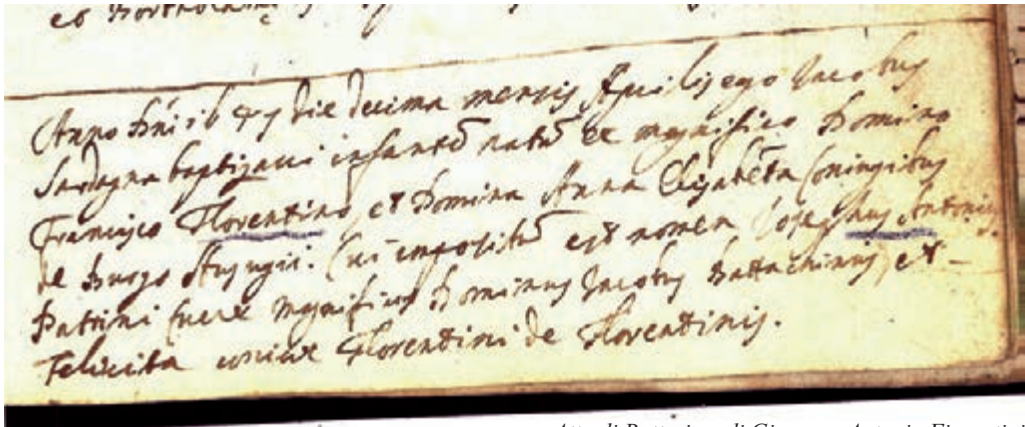 et
Anno Dni 16 die decima mensis Aprilis ego Jacobus
baptizavi infantē natū ex magnifico Domino
Francisco Florentino, et Domina Anna Elizabetta Coniugibus
de Burgo. Cui impositū est nomen Josephus Antonius.
Pattini fuere magnificus Dominus Jacobus Battachinus, et
Felicita Florentini de Florentinis.
Atto di Battesimo di Giuseppe Antonio Fiorentini